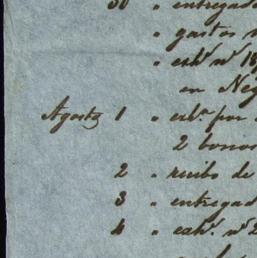 30 " entregad
" gastos
" exhº nº 18
en Neg
Agosto 1 " exhº por
2 bonos
2 " recibo de
3 " entregad
4 " exhº nº 2